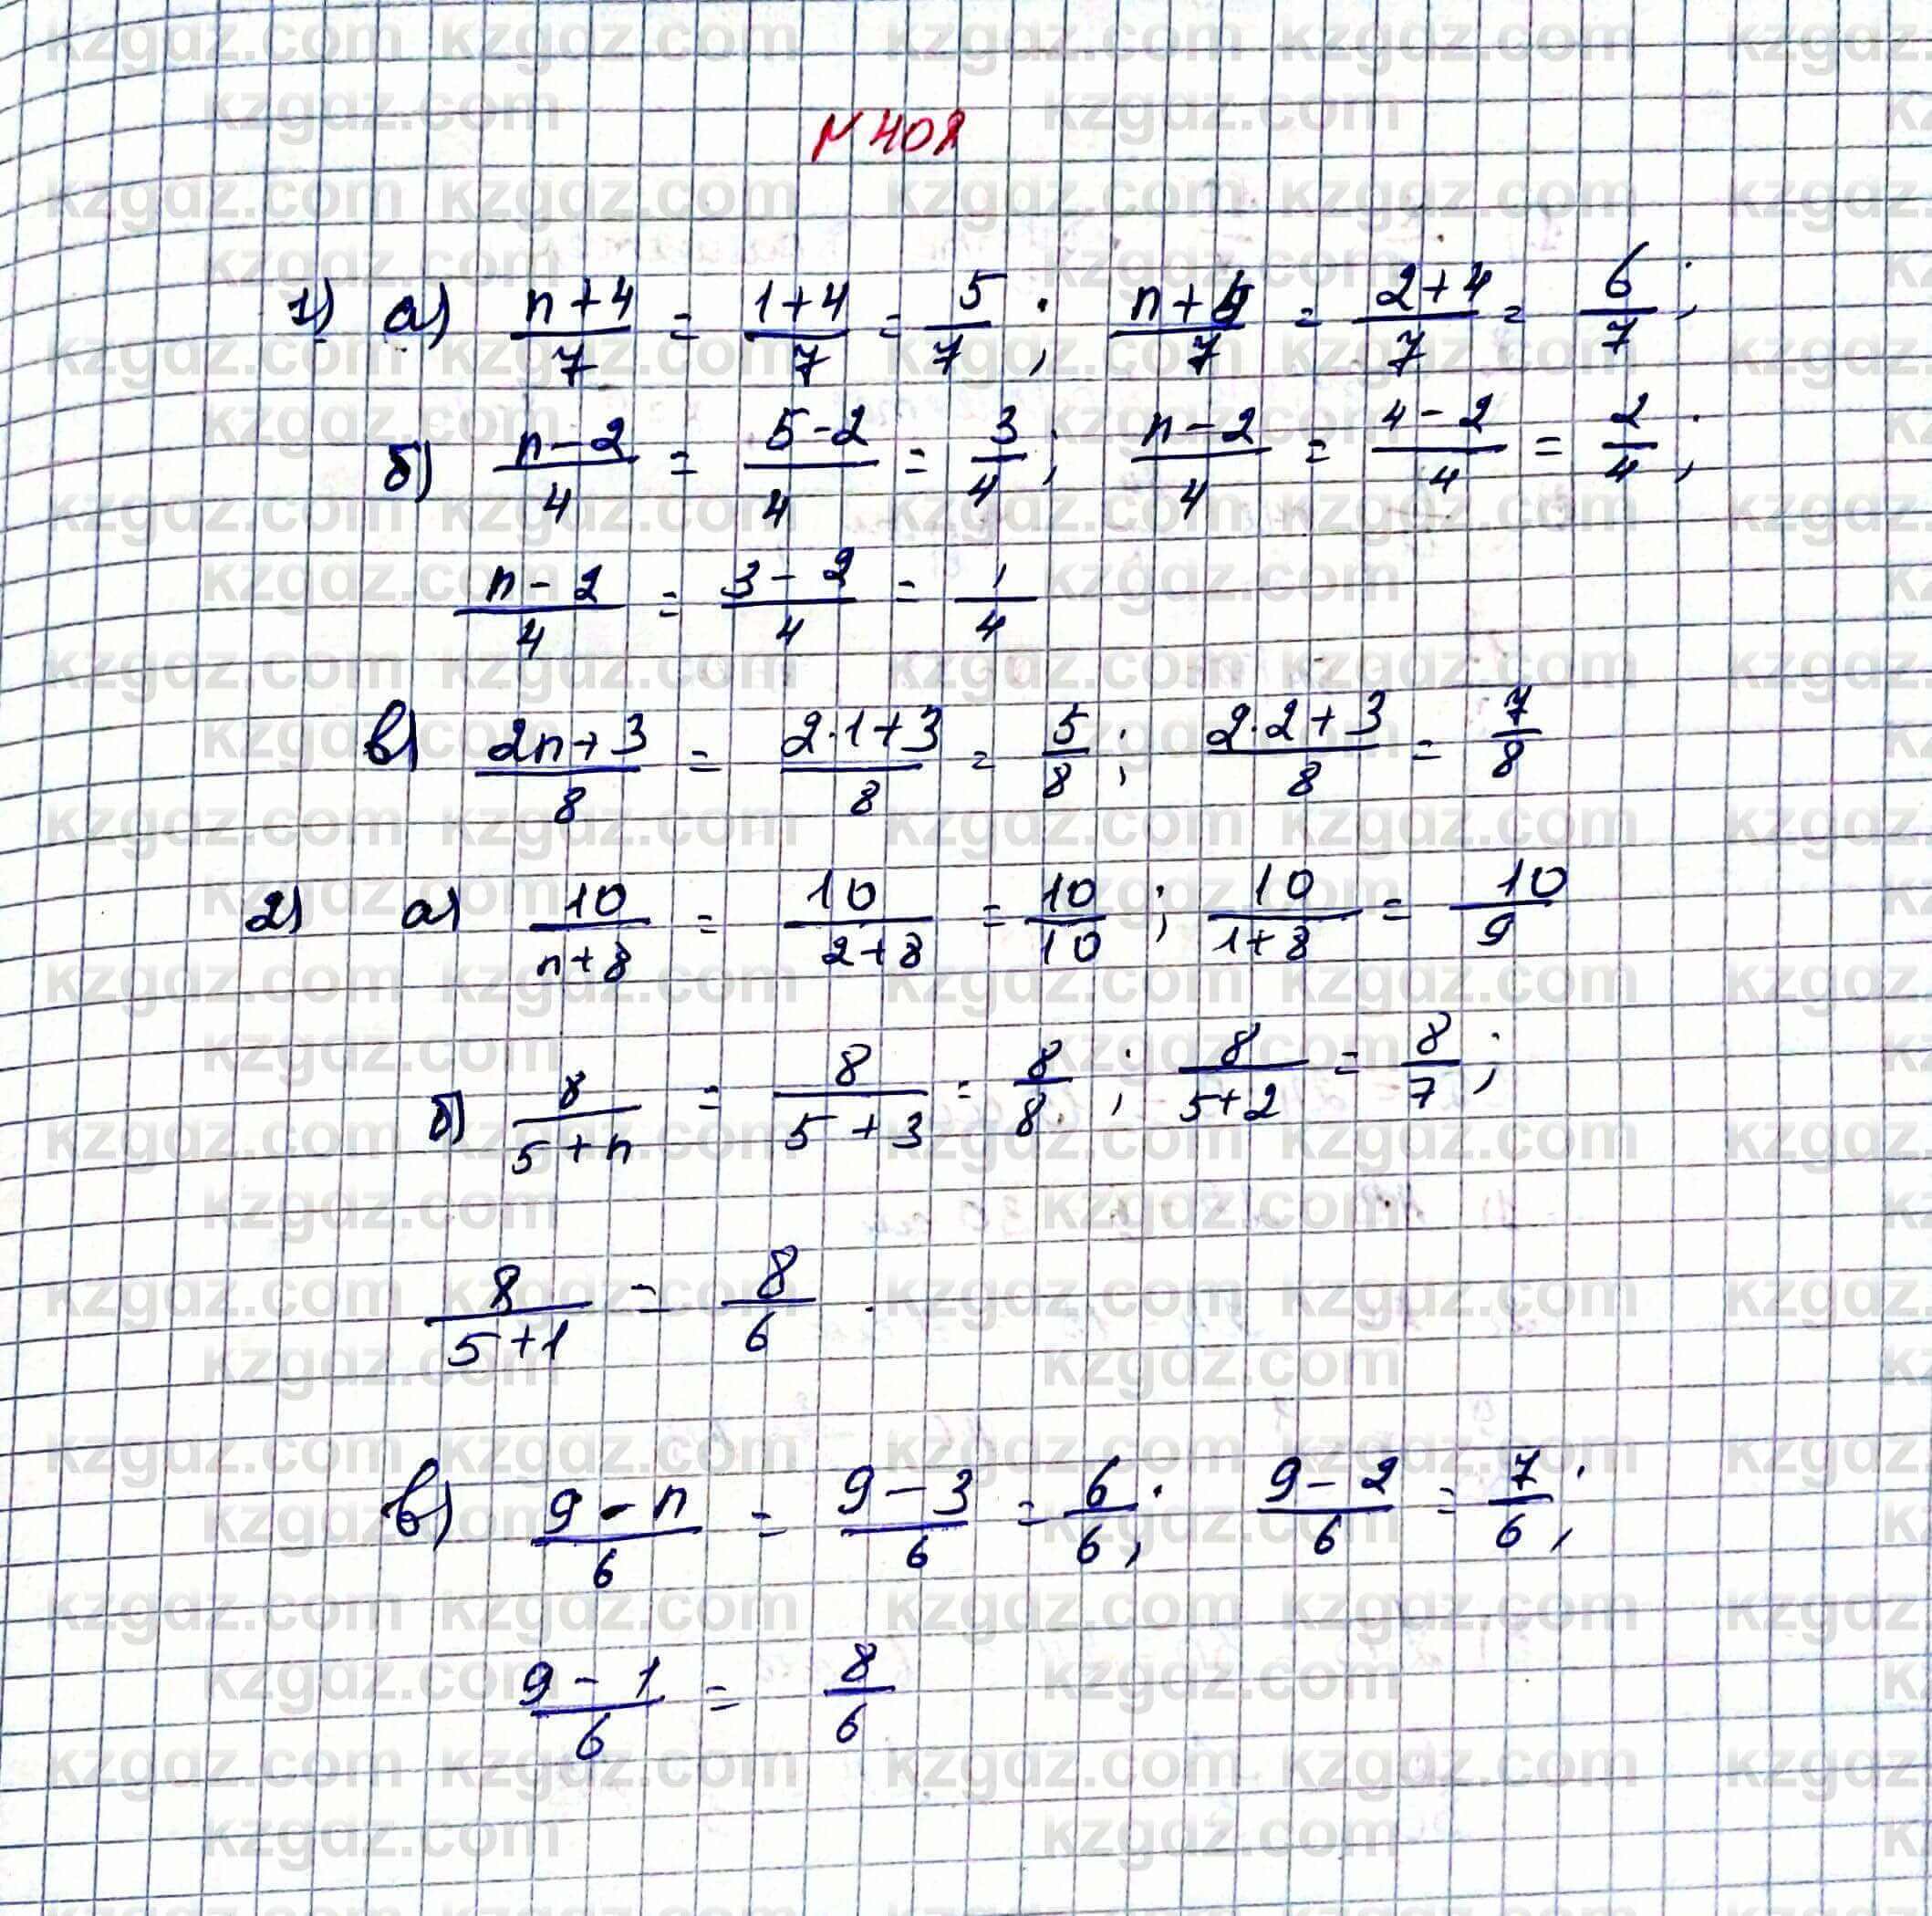 №408
1) а) (n+4)/7 = (1+4)/7 = 5/7; (n+4)/7 = (2+4)/7 = 6/7;
б) (n-2)/4 = (5-2)/4 = 3/4; (n-2)/4 = (4-2)/4 = 2/4;
(n-2)/4 = (3-2)/4 = 1/4
в) (2n+3)/8 = (2·1+3)/8 = 5/8; (2·2+3)/8 = 7/8
2) а) 10/(n+8) = 10/(2+8) = 10/10; 10/(1+8) = 10/9
б) 8/(5+n) = 8/(5+3) = 8/8; 8/(5+2) = 8/7;
8/(5+1) = 8/6
в) (9-n)/6 = (9-3)/6 = 6/6; (9-2)/6 = 7/6;
(9-1)/6 = 8/6
kzgdz.com